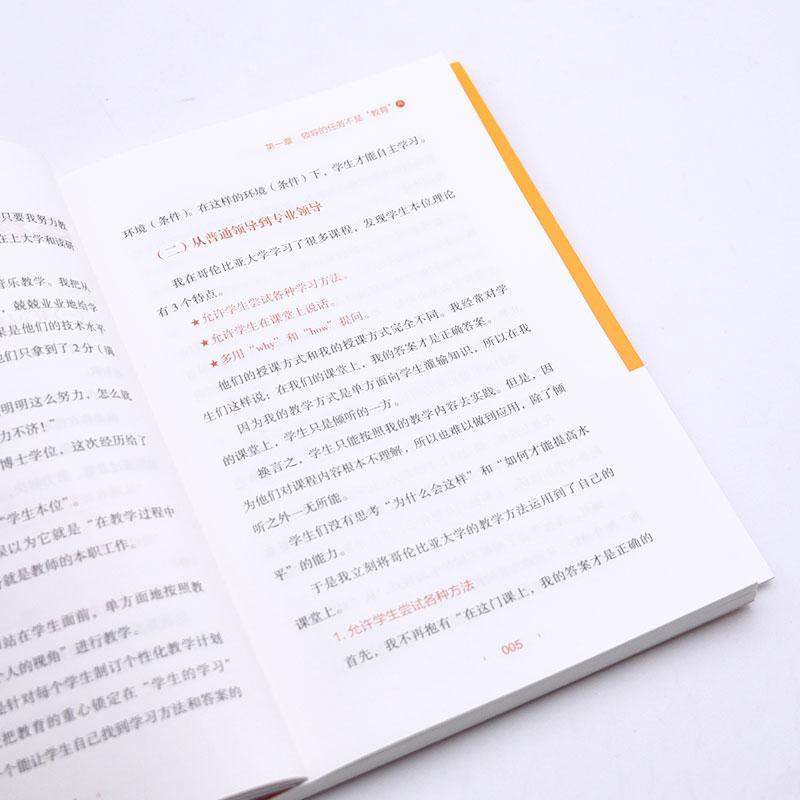 只要我努力教
在上大学和读研
音乐教学。我把从
，兢兢业业地给学
果是他们的技术水平
他们只拿到了2分（满
明明这么努力，怎么就
力不济！”
博士学位，这次经历给了
“学生本位”。
误以为它就是“在教学过程中
就是教师的本职工作。
站在学生面前，单方面地按照教
人的视角”进行教学。
是针对每个学生制订个性化教学计划
把教育的重心锁定在“学生的学习”
个能让学生自己找到学习方法和答案的
第一章 领导的任务不是“教育”
环境（条件）。在这样的环境（条件）下，学生才能自主学习。
（二）从普通领导到专业领导
我在哥伦比亚大学学习了很多课程，发现学生本位理论
有3个特点。
★允许学生尝试各种学习方法。
★允许学生在课堂上说话。
★多用“why”和“how”提问。
他们的授课方式和我的授课方式完全不同。我经常对学
生们这样说：在我们的课堂上，我的答案才是正确答案。
因为我的教学方式是单方面向学生灌输知识，所以在我
的课堂上，学生只是倾听的一方。
换言之，学生只能按照我的教学内容去实践。但是，因
为他们对课程内容根本不理解，所以也难以做到应用，除了倾
听之外一无所能。
学生们没有思考“为什么会这样”和“如何才能提高水
平”的能力。
于是我立刻将哥伦比亚大学的教学方法运用到了自己的
课堂上。
1. 允许学生尝试各种方法
首先，我不再抱有“在这门课上，我的答案才是正确的
005